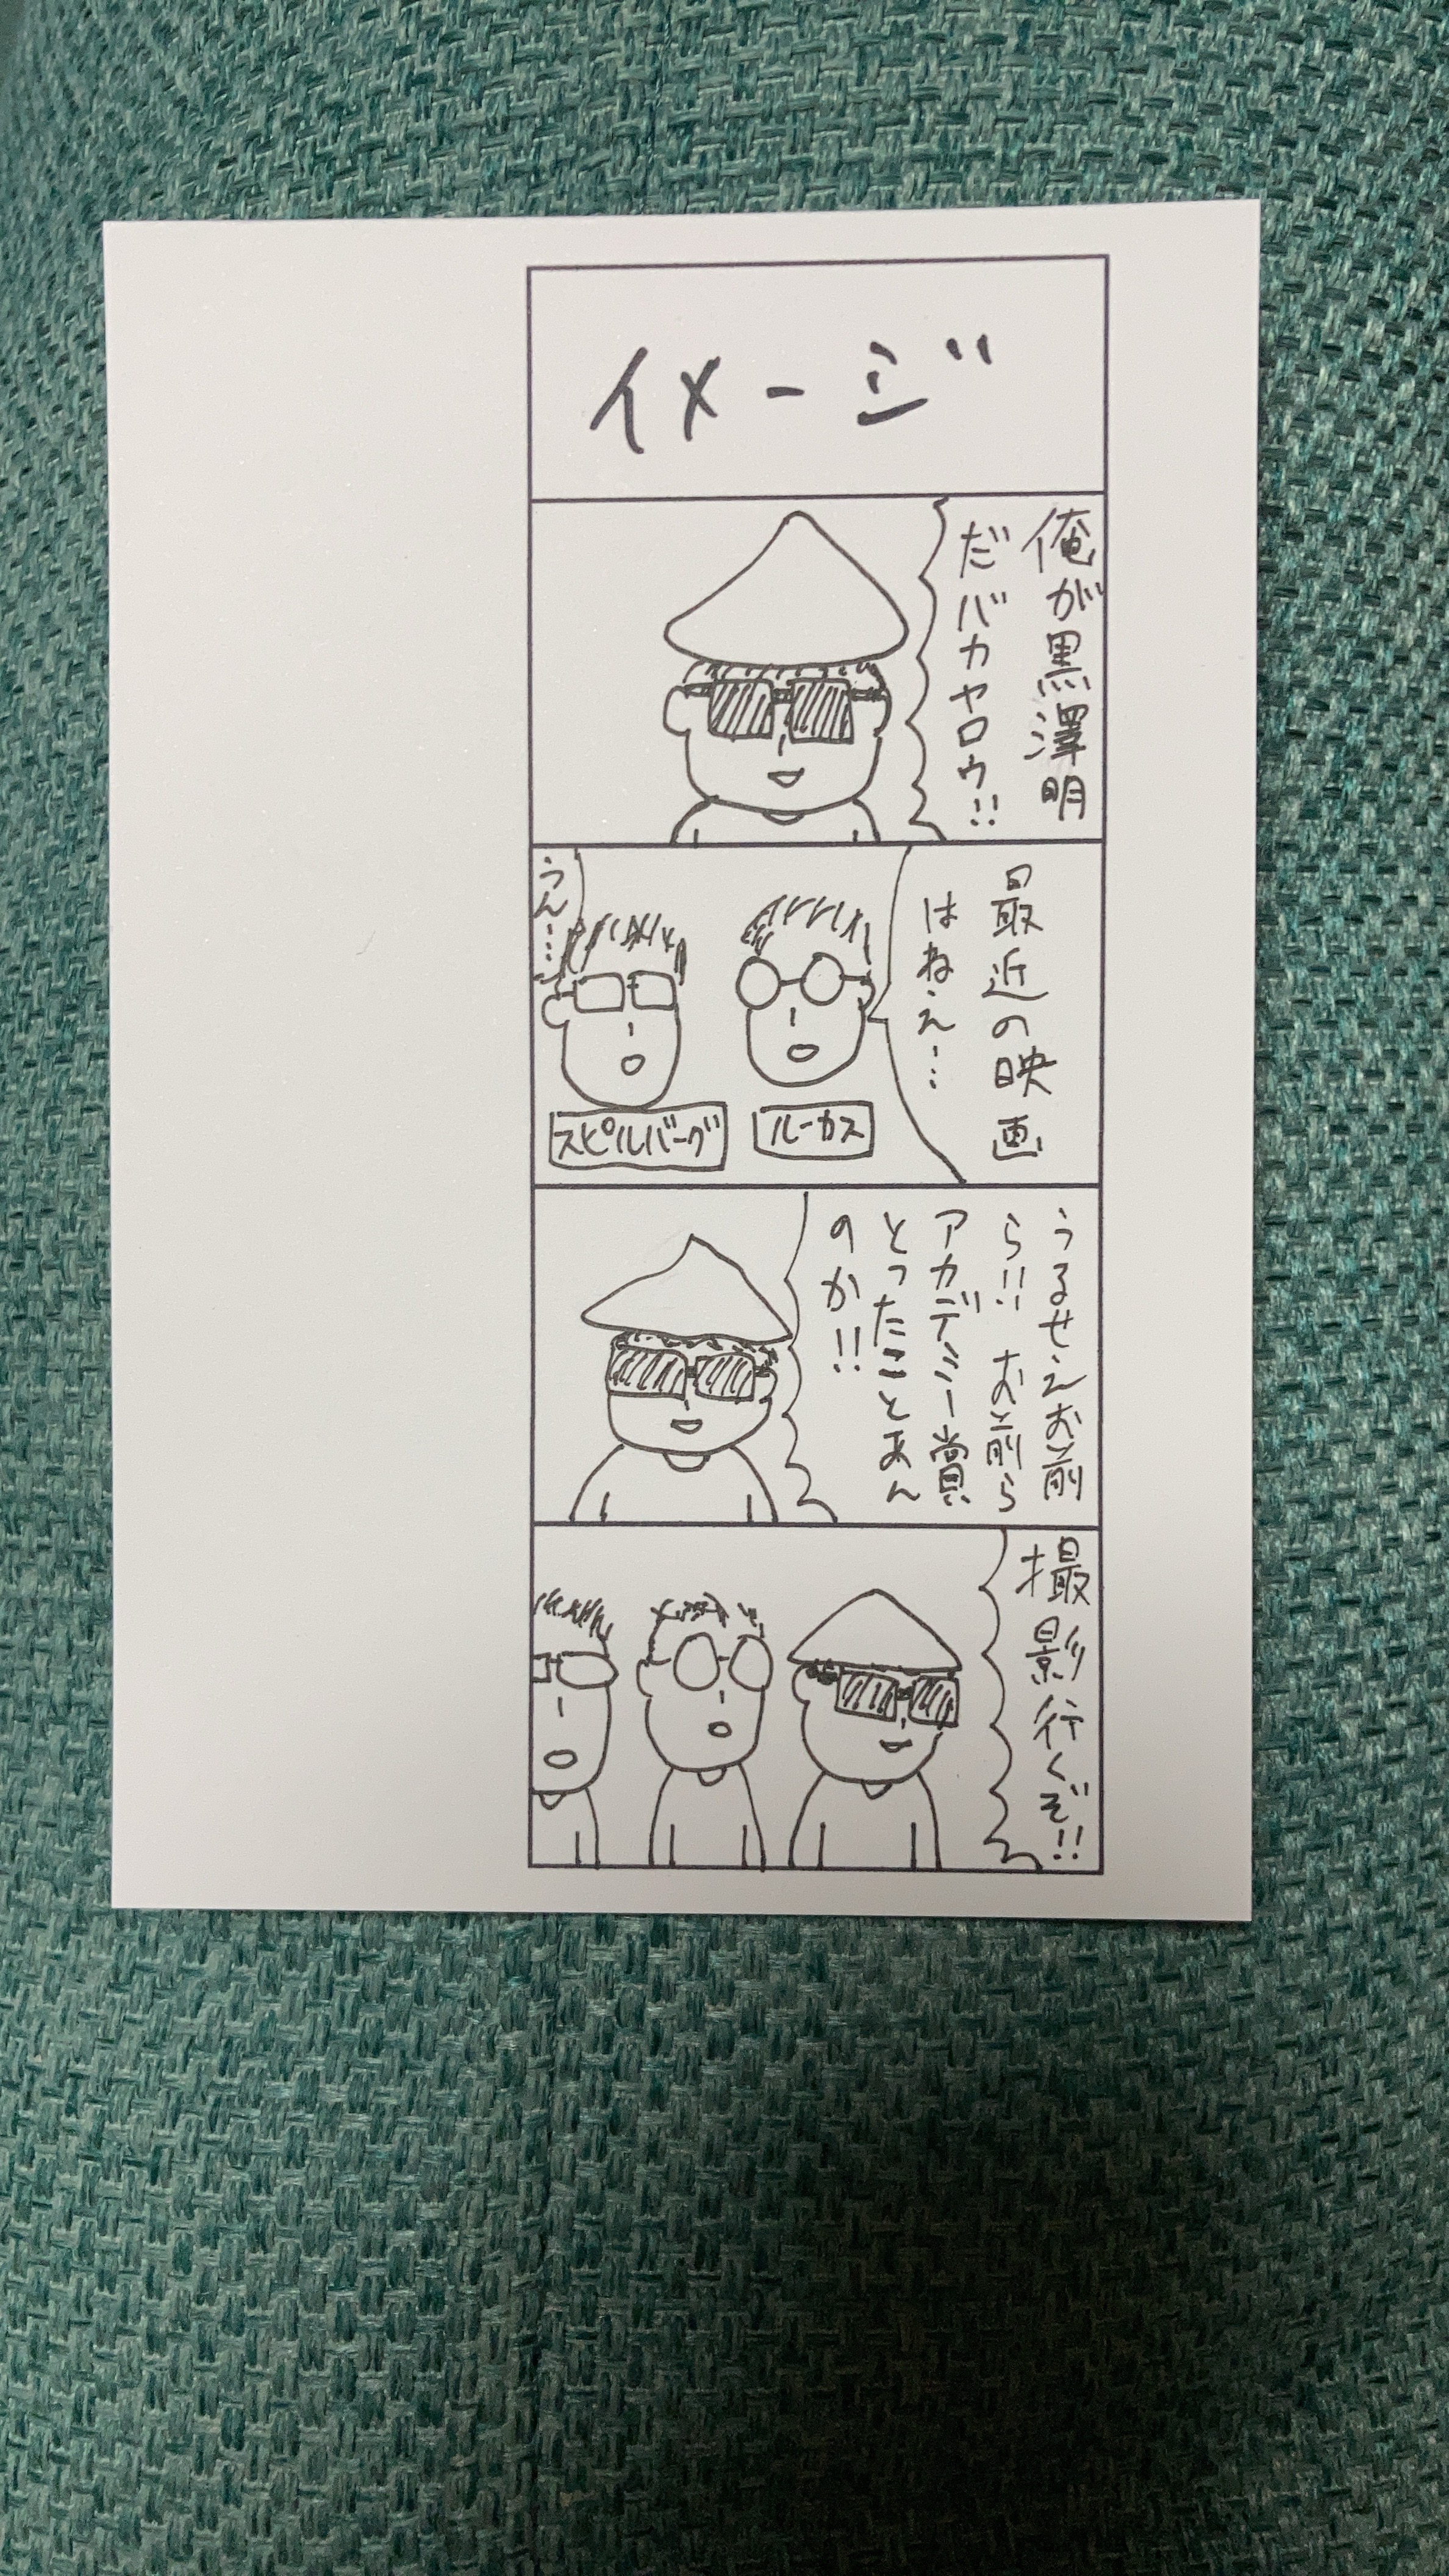 イメージ
俺が黒澤明
だバカヤロウ!!
最近の映画
はねえ…
うん…
ルーカス
スピルバーグ
うるせえお前
ら!! お前ら
アカデミー賞
とったことあん
のか!!
撮影行くぞ!!